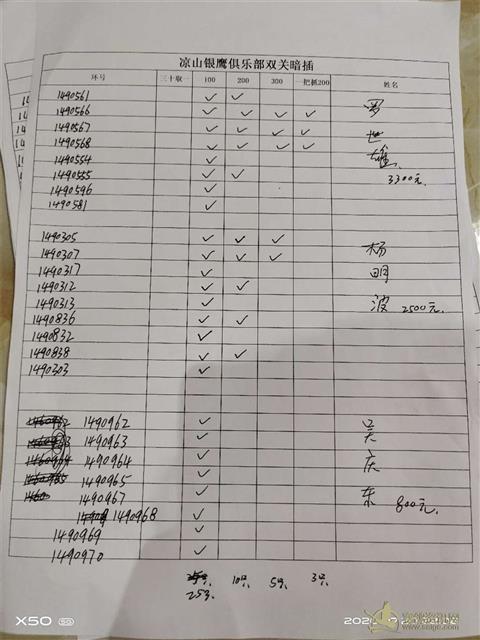 凉山银鹰俱乐部双关暗插
环号 三十取一 100 200 300 一把抓200 姓名
1490561 ✓ ✓ 罗
1490566 ✓ ✓ ✓ ✓
1490567 ✓ ✓ ✓ ✓ 世
1490568 ✓ ✓ ✓ ✓ 雄
1490554 ✓
1490555 ✓ ✓ 3300元.
1490596 ✓
1490581 ✓
1490305 ✓ ✓ ✓
1490307 ✓ ✓ ✓ 杨
1490317 ✓ 明
1490312 ✓ ✓
1490313 ✓ 波 2500元.
1490836 ✓ ✓
1490832 ✓
1490838 ✓ ✓
1490303 ✓
1490962 ✓ 吴
1490963 ✓
1490964 ✓ 庆
1490965 ✓
1490967 ✓ 东 800元.
1490968 ✓
1490969 ✓
1490970 ✓
10只. 5只. 3只.
25只.
X50 5G